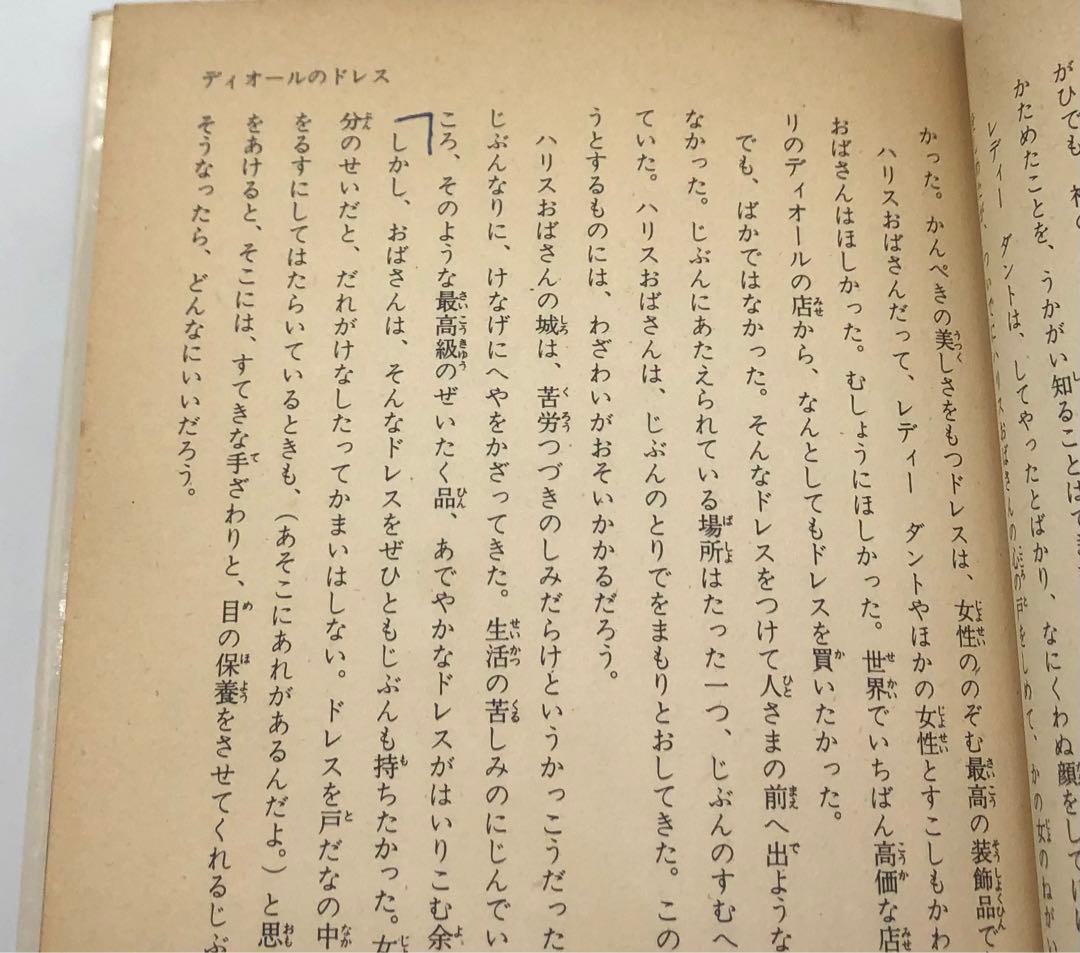 がひでも、
かためたことを、うかがい知ることはできな
レディー　ダントは、してやったとばかり、なにくわぬ顔をして
ディオールのドレス
かった。かんぺきの美しさをもつドレスは、女性ののぞむ最高の装飾品で
ハリスおばさんだって、レディー　ダントやほかの女性とすこしもかわ
おばさんはほしかった。むしょうにほしかった。世界でいちばん高価な店
りのディオールの店から、なんとしてもドレスを買いたかった。
でも、ばかではなかった。そんなドレスをつけて人さまの前へ出ような
なかった。じぶんにあたえられている場所はたった一つ、じぶんのすむへ
ていた。ハリスおばさんは、じぶんのとりでをまもりとおしてきた。この
うとするものには、わざわいがおそいかかるだろう。
ハリスおばさんの城は、苦労つづきのしみだらけというかっこうだった
じぶんなりに、けなげにへやをかざってきた。生活の苦しみのにじんでい
ころ、そのような最高級のぜいたく品、あでやかなドレスがはいりこむ余
しかし、おばさんは、そんなドレスをぜひともじぶんも持ちたかった。女
分のせいだと、だれがけなしたってかまいはしない。ドレスを戸だなの中
をるすにしてはたらいているときも、（あそこにあれがあるんだよ。）と思
をあけると、そこには、すてきな手ざわりと、目の保養をさせてくれるじぶ
そうなったら、どんなにいいだろう。